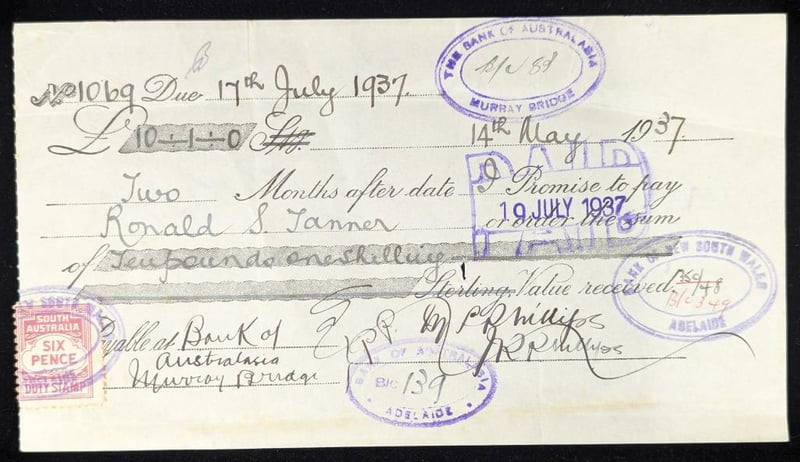 THE BANK OF AUSTRALASIA
B/C 88
MURRAY BRIDGE
No 1069 Due 17th July 1937.
£ 10-1-0 Stg. 14th May 1937.
Two Months after date I Promise to pay
Ronald S. Tanner or order the sum
PAID
19 JULY 1937
of Ten pounds one shilling
Sterling. Value received.
BANK OF NEW SOUTH WALES
B/C 349
ADELAIDE
SOUTH
AUSTRALIA
SIX
PENCE
DUTY STAMP
Payable at Bank of
Australasia
Murray Bridge
P.P. M P R Phillips
J R Phillips
BANK OF AUSTRALASIA
B/C 139
ADELAIDE